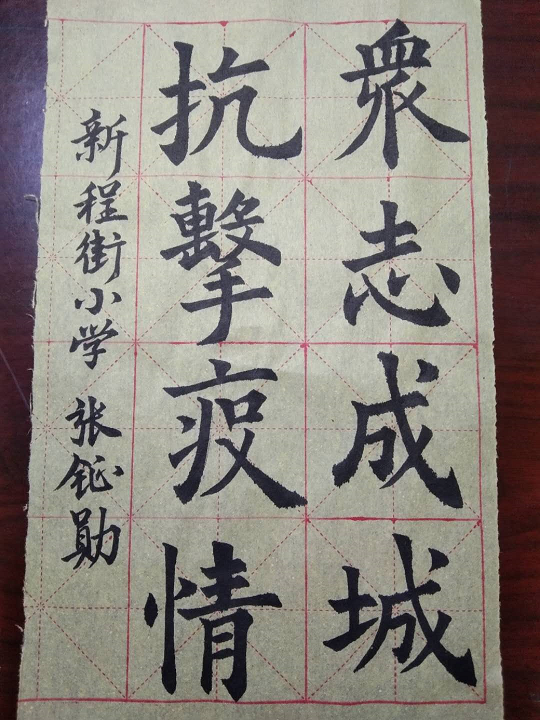 衆志成城
抗擊疫情
新程街小学 张钲勋